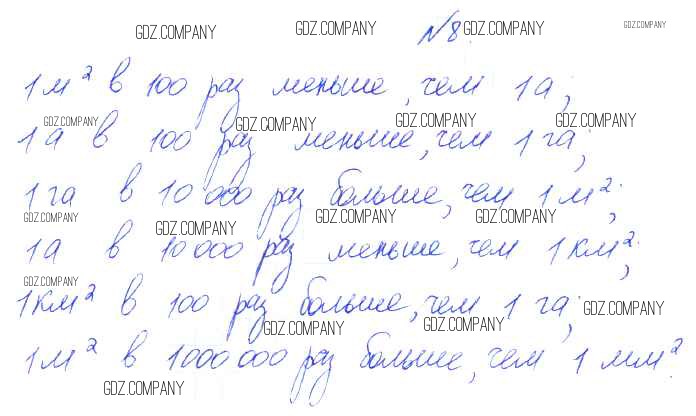 GDZ.COMPANY GDZ.COMPANY GDZ.COMPANY
№8.
1 м² в 100 раз меньше, чем 1 а;
GDZ.COMPANY GDZ.COMPANY GDZ.COMPANY GDZ.COMPANY
1 а в 100 раз меньше, чем 1 га;
1 га в 10 000 раз больше, чем 1 м²;
GDZ.COMPANY GDZ.COMPANY GDZ.COMPANY GDZ.COMPANY
1 а в 10 000 раз меньше, чем 1 км²;
GDZ.COMPANY
1 км² в 100 раз больше, чем 1 га;
GDZ.COMPANY GDZ.COMPANY GDZ.COMPANY
1 м² в 1 000 000 раз больше, чем 1 мм².
GDZ.COMPANY